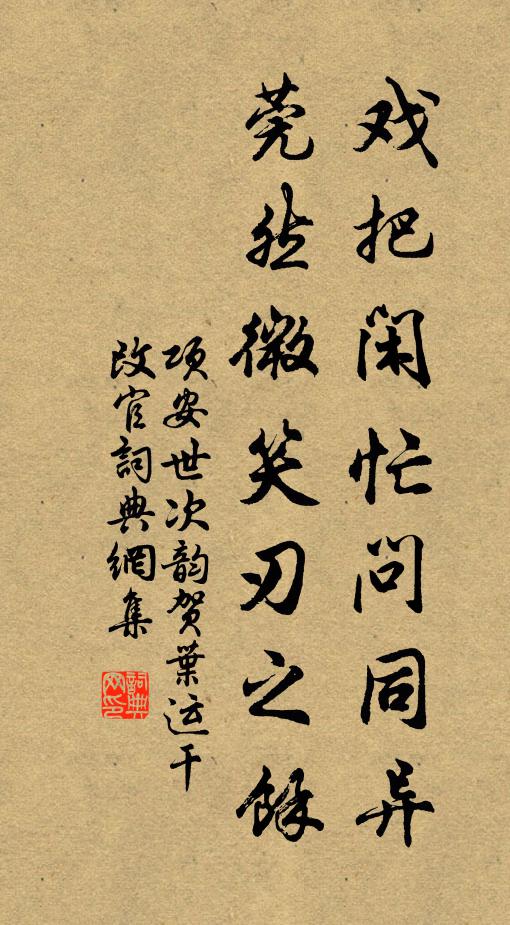 戏把闲忙问同异
莞然微笑刃之馀
项安世次韵贺葉运干
改官詞典網集
詞典网印